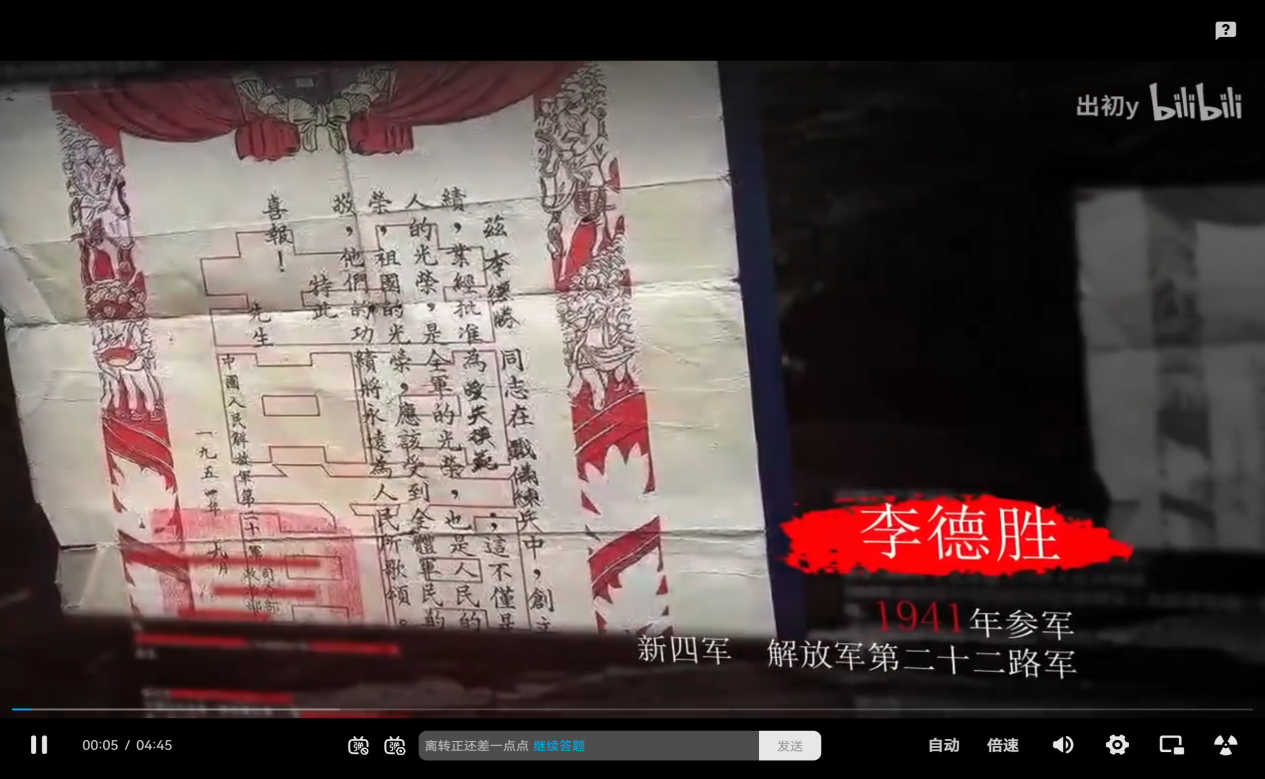 出初y bilibili
茲 李德勝 同志在戰備練兵中,創立
績,業經批准為
人的光榮,是全軍的光榮,也是人民的
榮,祖國的光榮,應該受到全體軍民的
敬,他們的功績將永遠為人民所歌頌。
特此
喜報!
先生
中國人民解放軍第二十
一九五四年 九月
李德胜
1941年参军
新四军 解放军第二十二路军
00:05 / 04:45
离转正还差一点点 继续答题
发送
自动
倍速